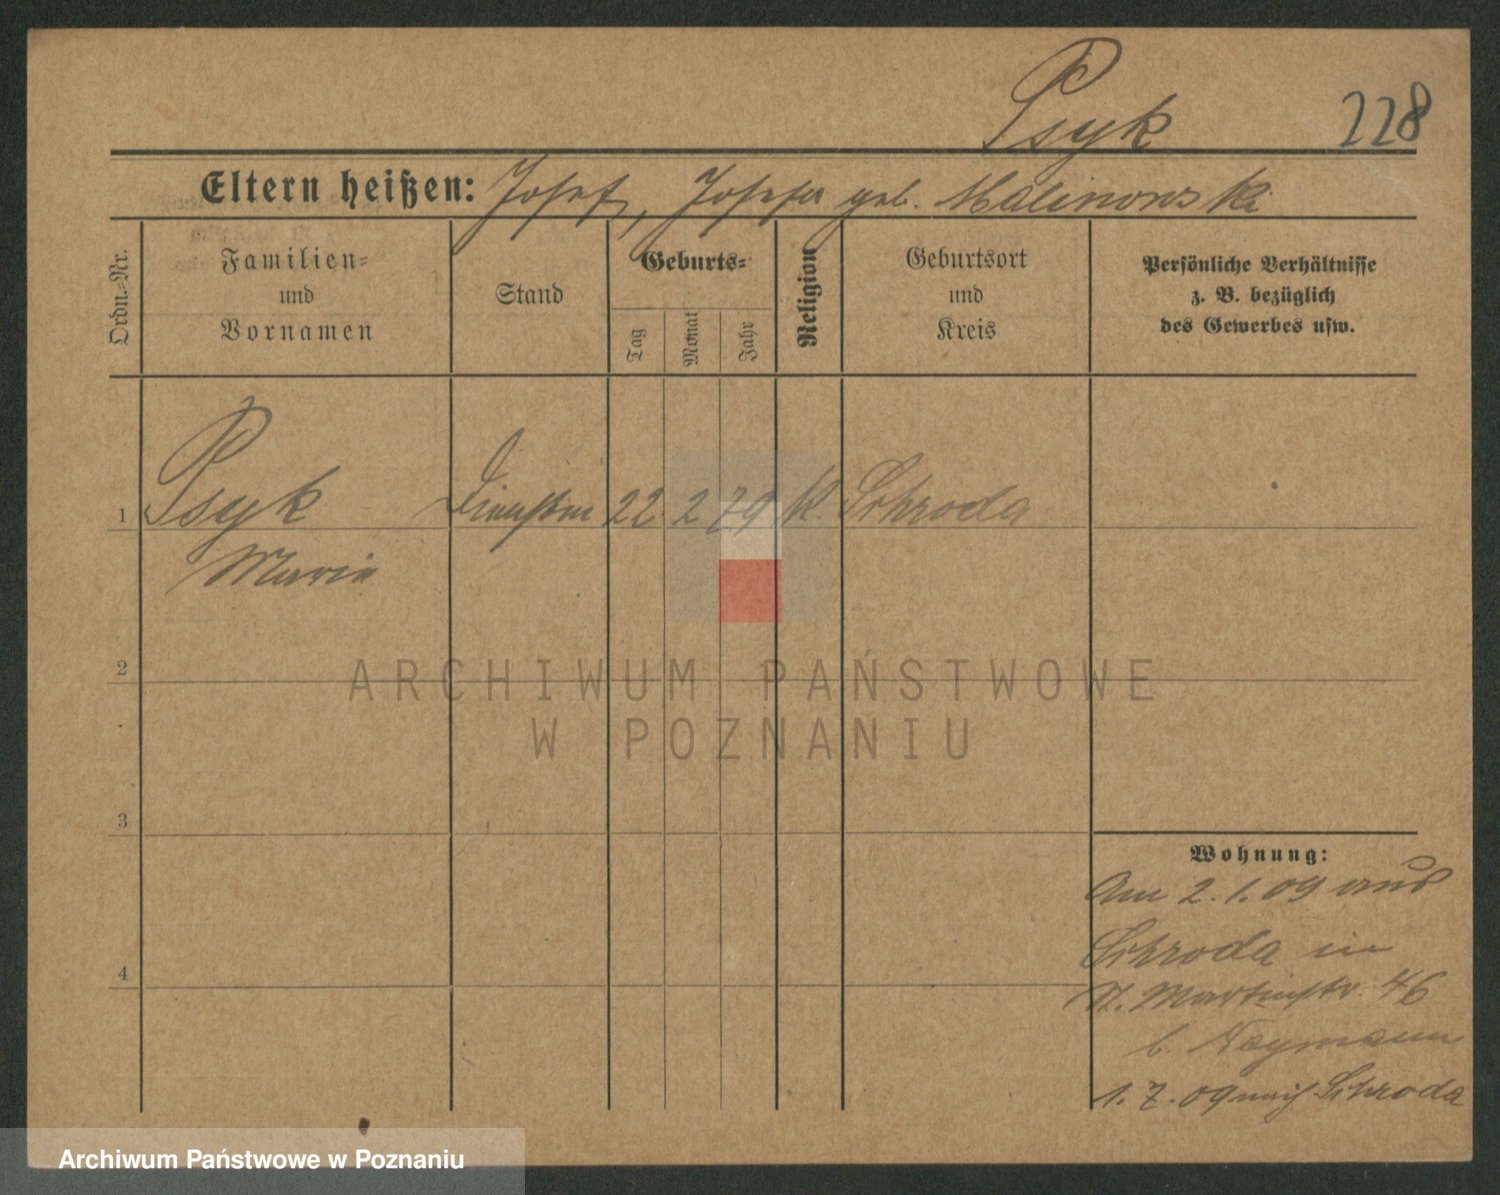 Psyk 228
Eltern heißen: Josef, Josefa geb. Malinowski
Ordn.-Nr.
Familien-
und
Vornamen
Stand
Geburts-
Tag
Monat
Jahr
Religion
Geburtsort
und
Kreis
Persönliche Verhältnisse
z. B. bezüglich
des Gewerbes usw.
1 Psyk 22 2 79 K Schroda
Maria
2
ARCHIWUM PAŃSTWOWE
W POZNANIU
3
Wohnung:
Am 2.1.09 aus
Schroda in
St. Martinstr. 46
4
b.
1.7.09 nach Schroda
Archiwum Państwowe w Poznaniu